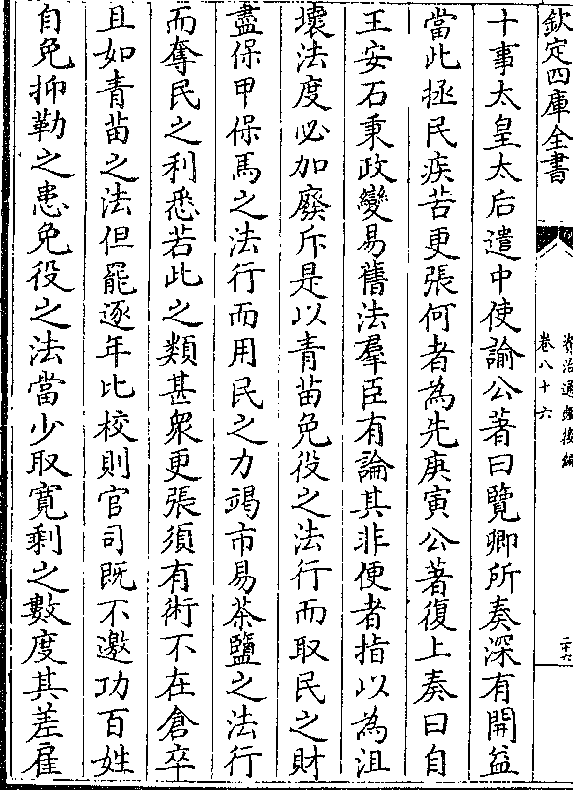 欽定四庫全書
資治通鑑後編
卷八十六
二十六
十事太皇太后遣中使諭公著曰覽卿所奏深有開益
當此拯民疾苦更張何者為先庚寅公著復上奏曰自
王安石秉政變易舊法羣臣有論其非便者指以為沮
壞法度必加廢斥是以青苗免役之法行而取民之財
盡保甲保馬之法行而用民之力竭市易茶鹽之法行
而奪民之利悉若此之類甚衆更張須有術不在倉卒
且如青苗之法但罷逐年比校則官司既不邀功百姓
自免抑勒之患免役之法當少取寛剩之數度其差雇